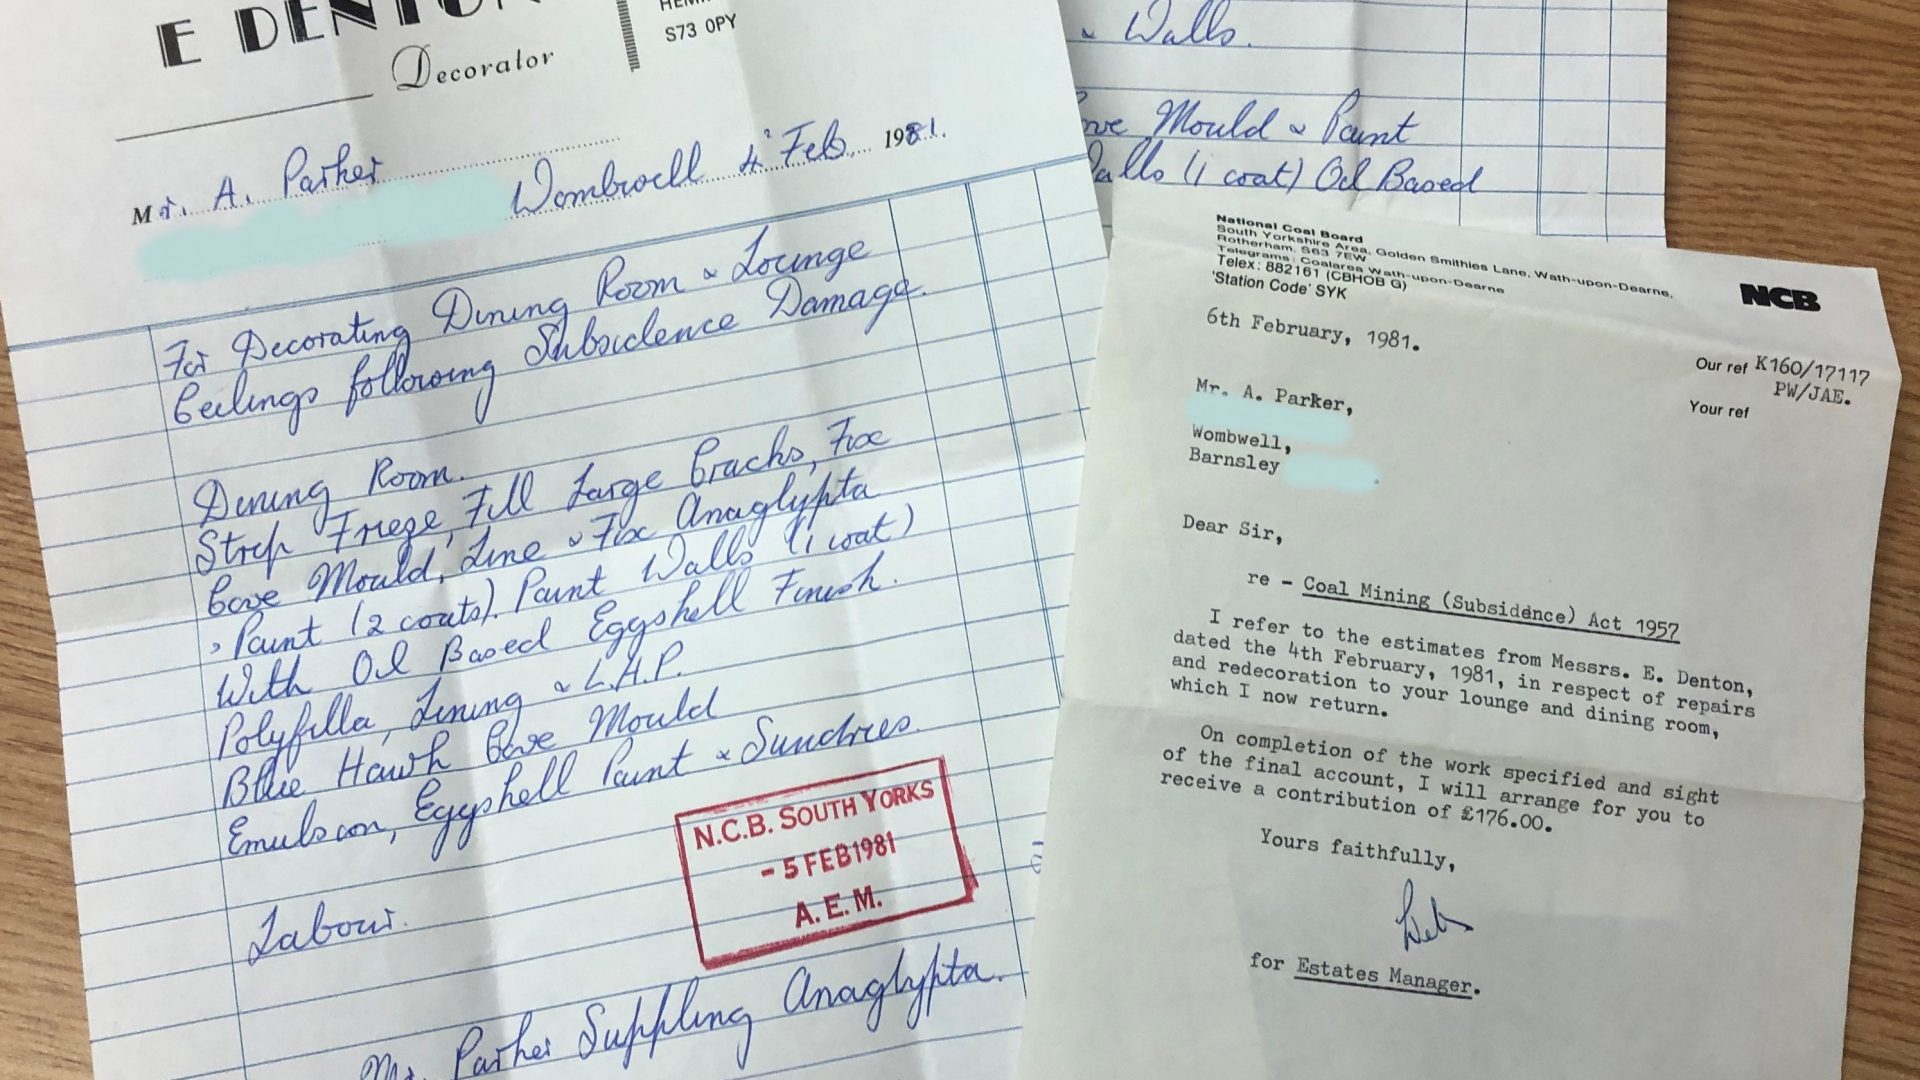 E DENTON
Decorator
S73 0PY
Mr. A. Parker
Wombwell 4th Feb 1981.
For Decorating Dining Room & Lounge
Ceilings following Subsidence Damage.
Dining Room.
Strip Frieze, Fill Large Cracks, Fix
Cove Mould, Line & Fix Anaglypta
, Paint (2 coats). Paint Walls (1 coat)
With Oil Based Eggshell Finish.
Polyfilla, Lining & L.A.P.
Blue Hawk Cove Mould
Emulsion, Eggshell Paint & Sundries.
Labour.
Mr. Parker Suppling Anaglypta.
N.C.B. SOUTH YORKS
- 5 FEB 1981
A.E.M.
& Walls.
Mould & Paint
Walls (1 coat) Oil Based
National Coal Board
South Yorkshire Area, Golden Smithies Lane, Wath-upon-Dearne,
Rotherham. S63 7EW
Telegrams: Coalarea Wath-upon-Dearne
Telex: 882161 (CBHOB G)
'Station Code' SYK
NCB
6th February, 1981.
Our ref K160/17117
PW/JAE.
Your ref
Mr. A. Parker,
Wombwell,
Barnsley .
Dear Sir,
re - Coal Mining (Subsidence) Act 1957
I refer to the estimates from Messrs. E. Denton,
dated the 4th February, 1981, in respect of repairs
and redecoration to your lounge and dining room,
which I now return.
On completion of the work specified and sight
of the final account, I will arrange for you to
receive a contribution of £176.00.
Yours faithfully,
for Estates Manager.